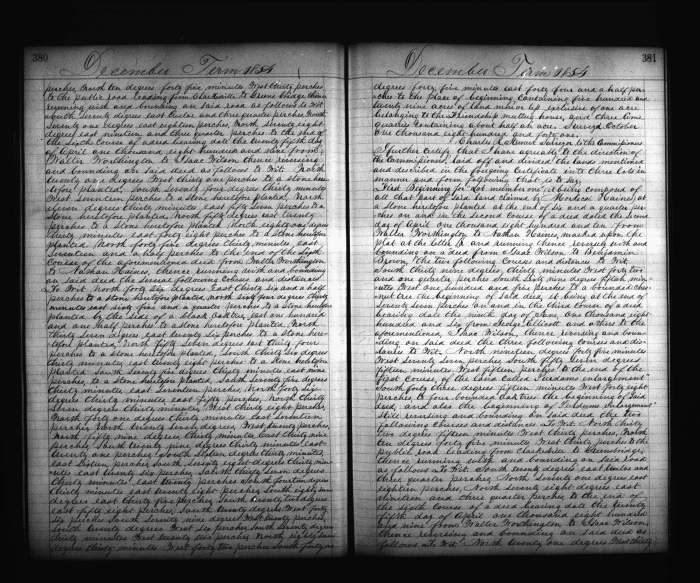 380
December Term 1854
perches, North ten degrees forty five minutes West thirty perches
to the public road leading from Clarksville to Greene Bridge thence
running with and bounding on said road as follows to Wit
South Seventy degrees east twelve and three quarter perches North
Seventy one degrees east eighteen perches North Seventy eight
degrees east nineteen and three quarter perches to the end of
the Sixth Course of a deed bearing date the twenty fifth day
of April one thousand eight hundred and nine from
Walter Worthington to Isaac Wilson thence reversing
and bounding on said deed as follows to Wit North
twenty one degrees West thirty one perches to a stone here
tofore planted, South Seventy four degrees thirty minutes
West Seventeen perches to a stone heretofore planted, North
eleven degrees thirty minutes West thirty six perches
to a stone heretofore planted, North fifty degrees east twenty
perches to a stone heretofore planted North eighty one degrees
thirty minutes east forty eight perches to a stone heretofore
planted, North forty five degrees thirty minutes east
Seventeen and a half perches to the end of the
Course of the aforementioned deed from Walter Worthington
to Nathan Haines, thence running with and bounding
on said deed the several following courses and distances
to Wit North forty six degrees East thirty six and a half
perches to a stone heretofore planted North sixty four degrees thirty
minutes east sixty five and a quarter perches to a stone heretofore
planted by the side of a black oak tree, just one hundred
and one half perches to a stone heretofore planted, North
thirty Seven degrees east twenty six perches to a stone here
tofore planted, North fifty Seven degrees east thirty four
perches to a stone heretofore planted, South thirty Six degrees
thirty minutes east twenty eight perches to a stone heretofore
planted South Seventy five degrees thirty minutes east nine
perches, to a stone heretofore planted, South Seventy five degrees
thirty minutes east Seventeen perches North forty six
degrees thirty minutes, east fifty perches, North thirty
Seven degrees thirty minutes, West thirty eight perches,
North forty one degrees thirty minutes east Seventeen
perches North twenty Seven degrees, West twenty perches,
North fifty nine degrees thirty minutes East thirty nine
perches, South twenty nine degrees thirty minutes east
twenty one perches, South sixteen degrees thirty minutes,
east Sixteen perches South Seventy eight degrees thirty minutes
east twenty six perches South thirty Seven degrees
thirty minutes east twenty perches South fourteen degrees
thirty minutes east twenty eight perches South eighty nine
degrees east thirty five perches, South twenty two degrees
east fifty eight perches, South twenty degrees West forty
six perches South Seventy nine degrees West twenty perches,
South twenty degrees West six perches South Seventy degrees
thirty minutes West Seventy two perches North eighty nine
degrees thirty minutes West forty two perches South forty
381
December Term 1854
degrees forty five minutes east forty four and a half per
ches to the place of beginning containing five hundred and
twenty nine acres of land which is exclusive of one acre
belonging to the Friendship meeting house, and three lime
quarries containing about half an acre. Surveyed October
one thousand eight hundred and forty one.
Charles C. Stewart Surveyor to the Commissioners
I further certify that I have agreeably to the directions of
the Commissioners, laid off and divided the lands mentioned
and described in the foregoing Certificate into three lots in
manner and form following that is to Say
First Beginning for "Lot number one", it being composed of
all that part of said land claimed by Mordecai Haines, at
a stone heretofore planted at the end of six and a quarter per
ches on and in the second course of a deed dated the second
day of April one thousand eight hundred and ten from
Walter Worthington to Nathan Haines, marked upon the
plat at the letter A and running thence reversely with and
bounding on a deed from Isaac Wilson to Benjamin
Brown the two following Courses and distances to Wit
South thirty nine degrees, thirty minutes West forty two
and one quarter perches South Sixty nine degrees fifteen min
utes West one hundred five perches to a bounded ches
nut tree the beginning of said deed, it being at the end of
Seventy Seven perches on and in the third course of a deed
bearing date the ninth day of June, one thousand eight
hundred and six from George Ellicott and others to the
aforementioned Isaac Wilson, thence reversing and boun
ding on said deed the three following courses and dis
tances to Wit. North nineteen degrees forty five minutes
West Seventy Seven perches South fifty Seven degrees
fifteen minutes West fifteen perches to the end of the
first Course of the land called "Urdums enlargement"
South forty three degrees fifteen minutes West forty eight
perches to four bounded oak trees the beginning of said
deed, and also the beginning of "Urdums enlargement"
Still reversing and bounding on said deed the two
following Courses and distances to Wit. North thirty
two degrees fifteen minutes West thirty perches, North
ten degrees forty five minutes West thirty perches to the
public road leading from Clarksville to Greensbridge,
thence running with and bounding on Said Road
as follows to Wit. South Seventy degrees east twelve and
three quarter perches, North Seventy one degrees east
eighteen perches, North Seventy eight degrees east
nineteen and three quarter perches to the end of
the Sixth Course of a deed bearing date the twenty
fifth day of April one thousand eight hundred
and nine from Walter Worthington to Isaac Wilson,
thence reversing and bounding on said deed as
follows to Wit. North twenty one degrees West thirty